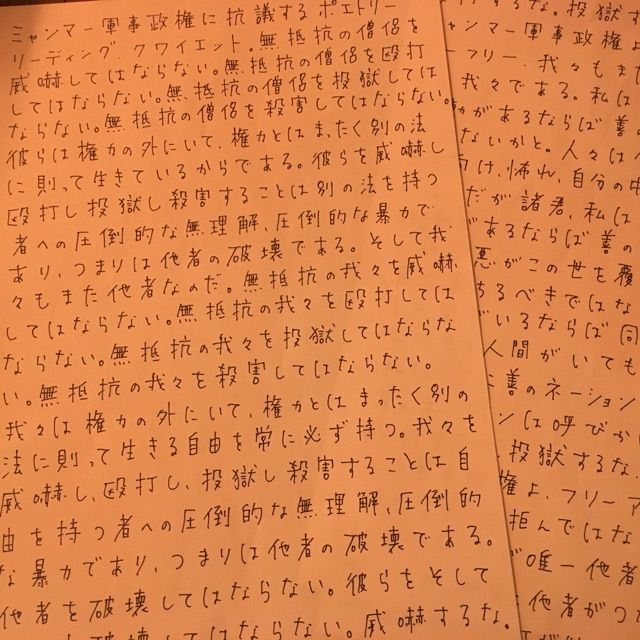 ミャンマー軍事政権に抗議するポエトリー
リーディング.クワイエット。無抵抗の僧侶を
威嚇してはならない。無抵抗の僧侶を殴打
してはならない。無抵抗の僧侶を投獄しては
ならない。無抵抗の僧侶を殺害してはならない。
彼らは権力の外にいて、権力とはまったく別の法
に則って生きているからである。彼らを威嚇し
殴打し投獄し殺害することは別の法を持つ
者への圧倒的な無理解、圧倒的な暴力で
あり、つまりは他者の破壊である。そして我
々もまた他者なのだ。無抵抗の我々を威嚇
してはならない。無抵抗の我々を殴打しては
ならない。無抵抗の我々を投獄してはならな
い。無抵抗の我々を殺害してはならない。
我々は権力の外にいて、権力とはまったく別の
法に則って生きる自由を常に必ず持つ。我々を
威嚇し、殴打し、投獄し殺害することは自
由を持つ者への圧倒的な無理解、圧倒的
な暴力であり、つまりは他者の破壊である。
他者を破壊してはならない。彼らをそして
威嚇するな。
なる。投獄す
ャンマー軍事政権よ
フリー.我々もまた
我々である。私は
があるならば善
ないかと。人々は
向け、怖れ、自分の中
だが諸君、私は
であるならば善の
悪がこの世を覆
ちるべきではな
いるならば同
人間がいても
善のネーション
ンは呼びか
投獄するな
権よ、フリーア
拒んではな
唯一他者
他者がつ